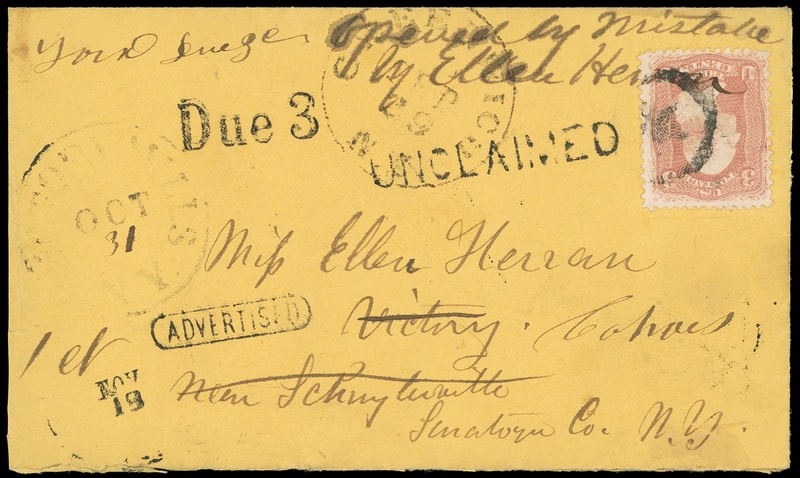 Opened by Mistake
by Ellen Herran
Due 3
UNCLAIMED
OCT
31
Miss Ellen Herran
ADVERTISED
Victory. Cohoes
1 ct
NOV
18
Near Schuylerville
Saratoga Co. N.Y.